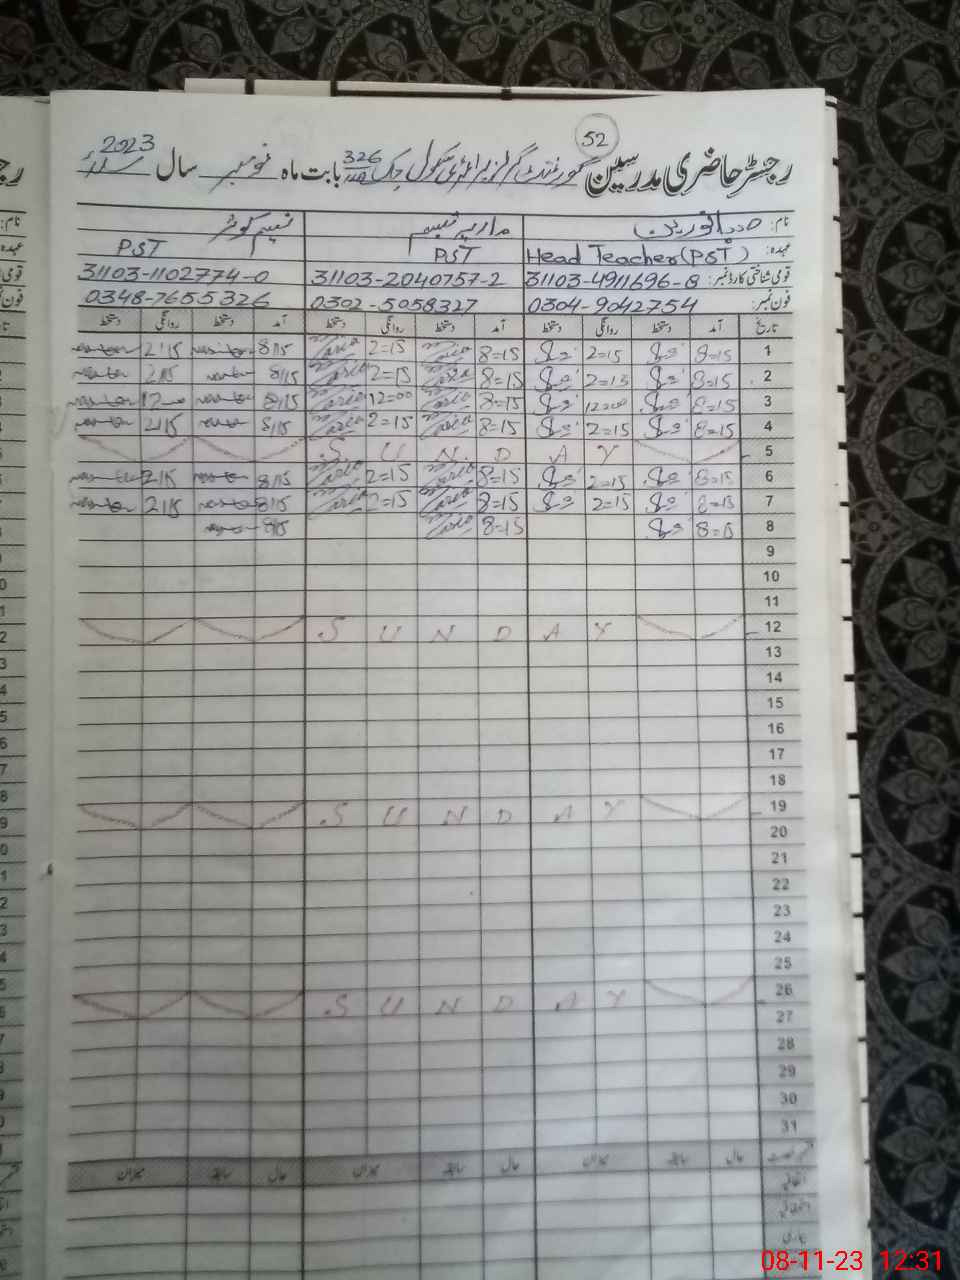 52
رجسٹر حاضری مدرسین گورنمنٹ گرلز پرائمری سکول چک 326 بابت ماہ نومبر سال 2023
نام: مدر النورین ماریہ تبسم نسیم کوثر
عہدہ: Head Teacher (PST) PST PST
قومی شناختی کارڈ نمبر: 31103-4911696-8 31103-2040757-2 31103-1102774-0
فون نمبر: 0304-9042754 0302-5058327 0348-7655326
تاریخ آمد دستخط روانگی دستخط آمد دستخط روانگی دستخط آمد دستخط روانگی دستخط
1 8=15 2=15 8=15 Maria 2=15 Maria 8:15 2:15
2 8=15 2=15 8=15 Maria 2=15 Maria 8:15 2:15
3 8=15 12=00 8=15 Maria 12=00 Maria 8:15
4 8=15 2=15 8=15 Maria 2=15 Maria 8:15 2:15
5 S U N D A Y
6 8=15 2=15 8=15 Maria 2=15 Maria 8:15 2:15
7 8=15 2=15 8=15 Maria 2=15 Maria 8:15 2:15
8 8=15 8=15 Maria 8:15
9
10
11
12 S U N D A Y
13
14
15
16
17
18
19 S U N D A Y
20
21
22
23
24
25
26 S U N D A Y
27
28
29
30
31
حال سابقہ میزان حال سابقہ میزان حال سابقہ میزان
اتفاقی
08-11-23 12:31